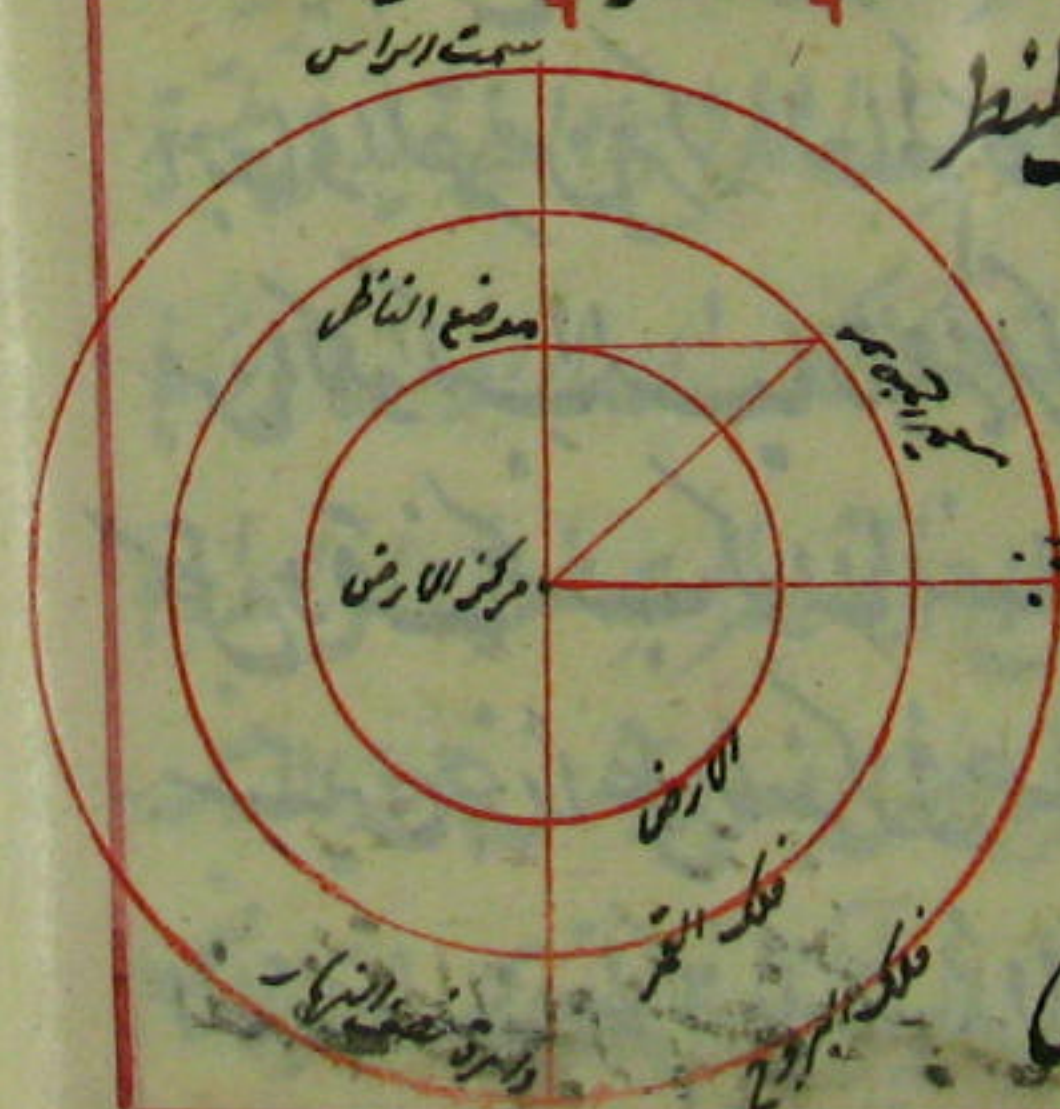 سمت الراس
موضع الناظر
مركز الارض
الارض
فلك القمر
فلك البروج
دائرة نصف النهار